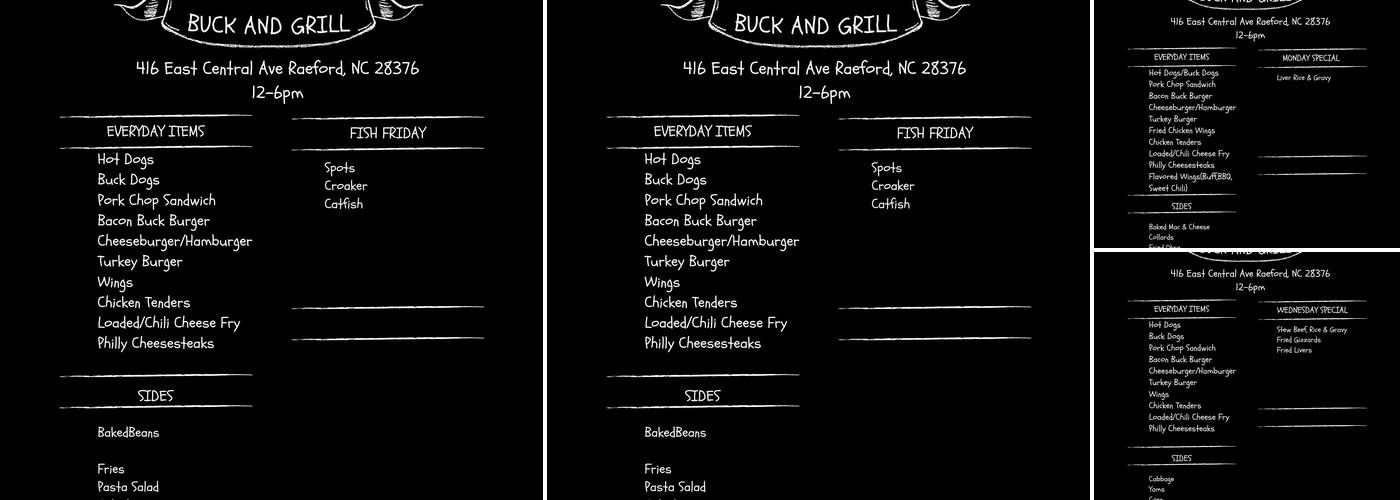 BUCK AND GRILL
416 East Central Ave Raeford, NC 28376
12-6pm
EVERYDAY ITEMS
Hot Dogs
Buck Dogs
Pork Chop Sandwich
Bacon Buck Burger
Cheeseburger/Hamburger
Turkey Burger
Wings
Chicken Tenders
Loaded/Chili Cheese Fry
Philly Cheesesteaks
SIDES
BakedBeans
Fries
Pasta Salad
FISH FRIDAY
Spots
Croaker
Catfish
BUCK AND GRILL
416 East Central Ave Raeford, NC 28376
12-6pm
EVERYDAY ITEMS
Hot Dogs
Buck Dogs
Pork Chop Sandwich
Bacon Buck Burger
Cheeseburger/Hamburger
Turkey Burger
Wings
Chicken Tenders
Loaded/Chili Cheese Fry
Philly Cheesesteaks
SIDES
BakedBeans
Fries
Pasta Salad
FISH FRIDAY
Spots
Croaker
Catfish
416 East Central Ave Raeford, NC 28376
12-6pm
EVERYDAY ITEMS
Hot Dogs/Buck Dogs
Pork Chop Sandwich
Bacon Buck Burger
Cheeseburger/Hamburger
Turkey Burger
Fried Chicken Wings
Chicken Tenders
Loaded/Chili Cheese Fry
Philly Cheesesteaks
Flavored Wings(Buff,BBQ,
Sweet Chili)
SIDES
Baked Mac & Cheese
Collards
Fried Okra
MONDAY SPECIAL
Liver Rice & Gravy
BUCK AND GRILL
416 East Central Ave Raeford, NC 28376
12-6pm
EVERYDAY ITEMS
Hot Dogs
Buck Dogs
Pork Chop Sandwich
Bacon Buck Burger
Cheeseburger/Hamburger
Turkey Burger
Wings
Chicken Tenders
Loaded/Chili Cheese Fry
Philly Cheesesteaks
SIDES
Cabbage
Yams
WEDNESDAY SPECIAL
Stew Beef, Rice & Gravy
Fried Gizzards
Fried Livers